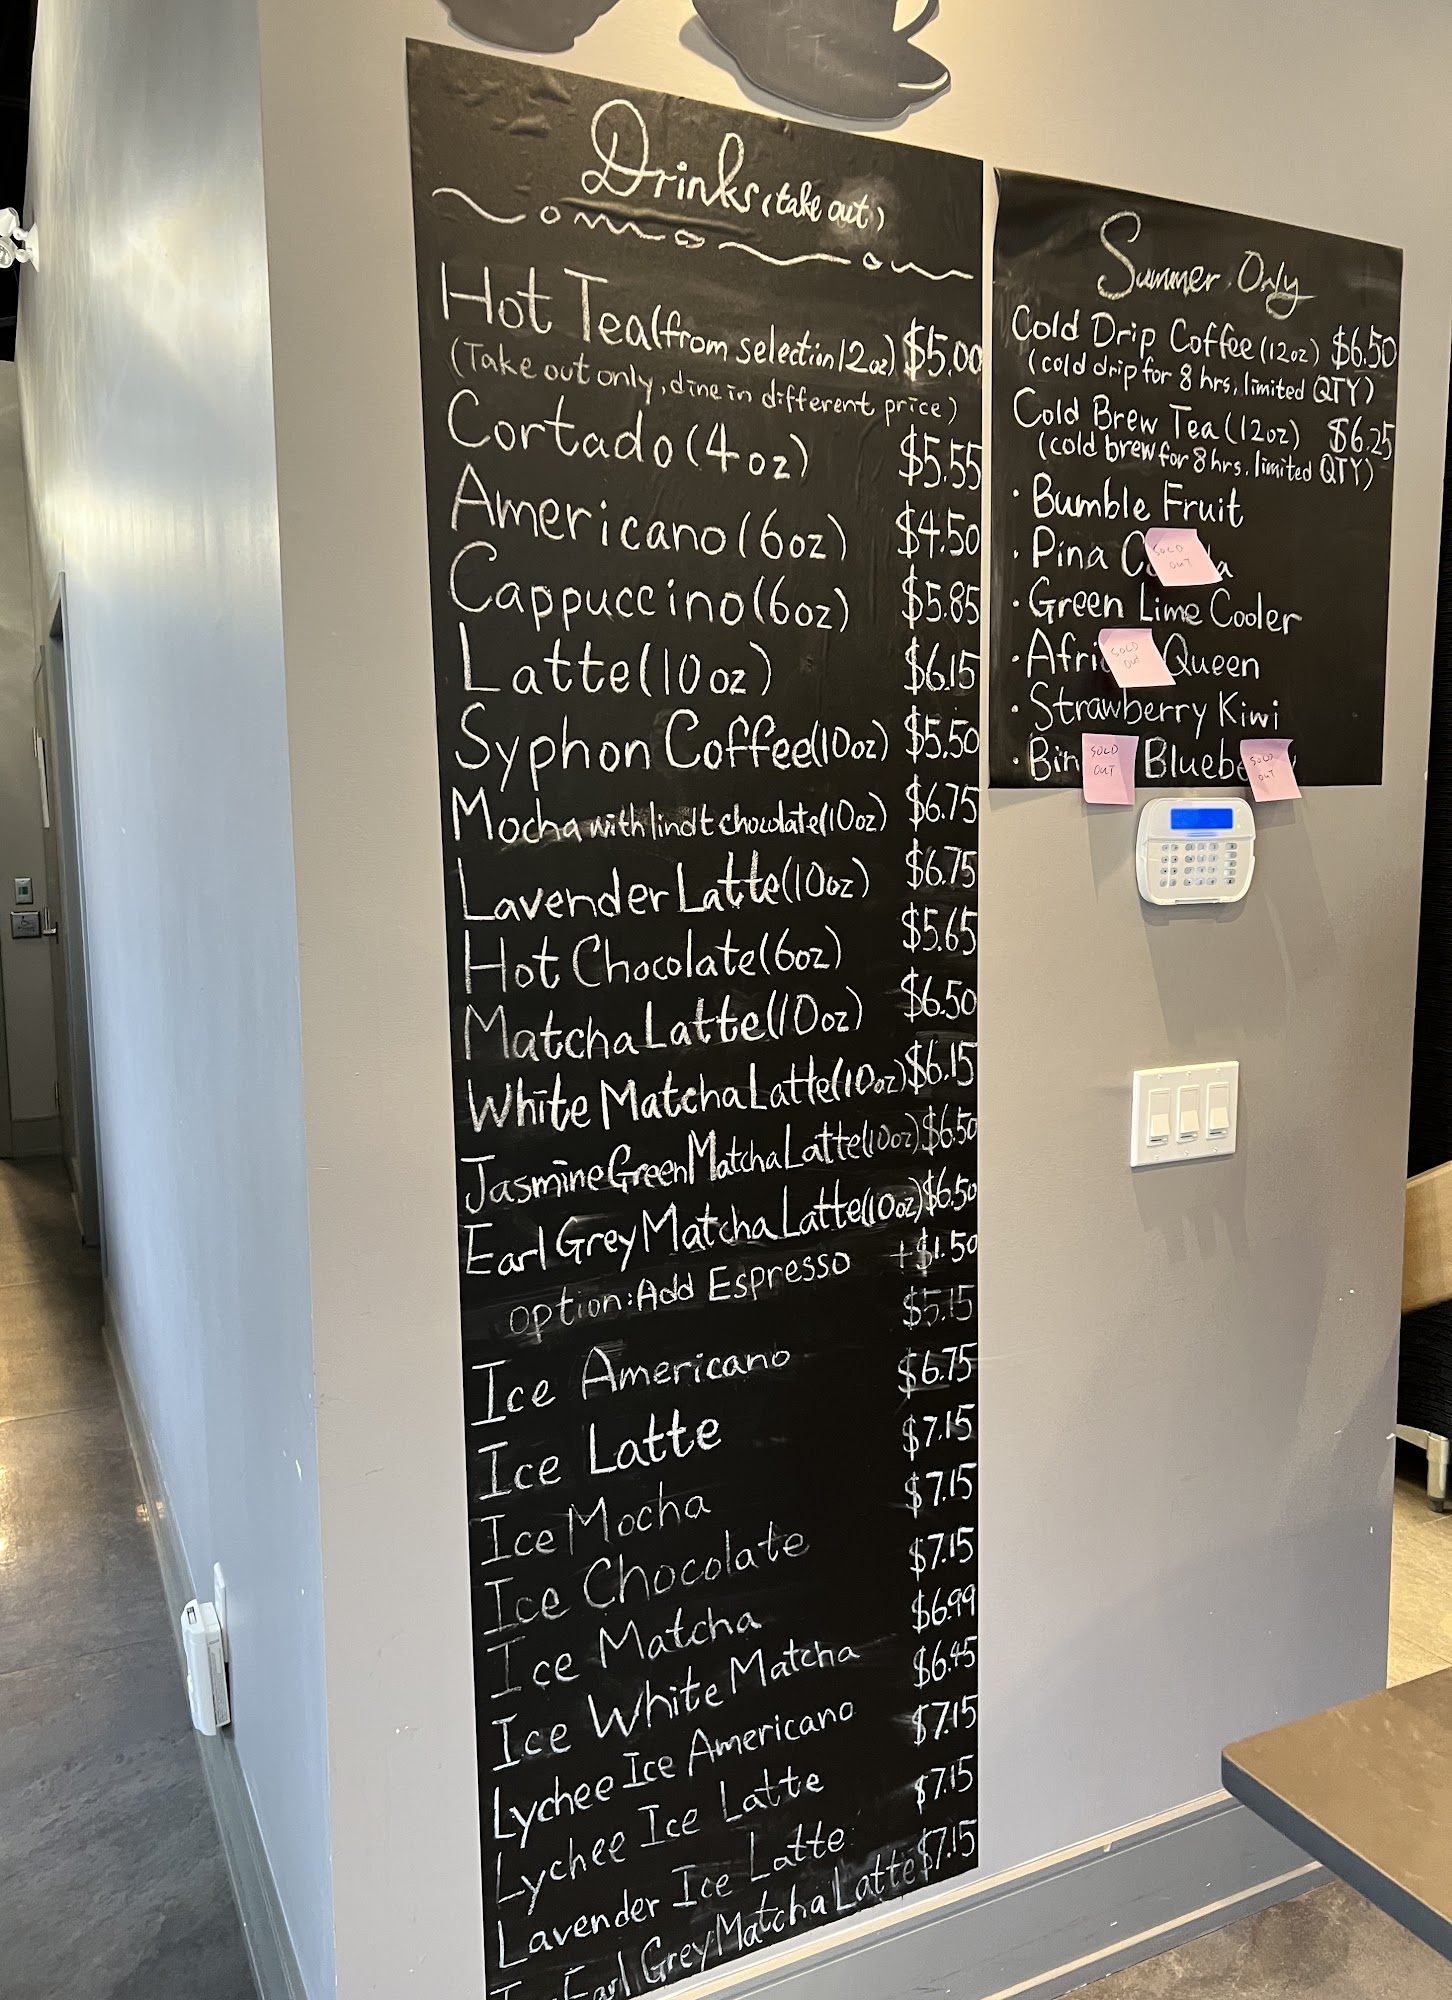 Drinks (take out)
Hot Tea (from selection 12oz) $5.00
(Take out only, dine in different price)
Cortado (4oz) $5.55
Americano (6oz) $4.50
Cappuccino (6oz) $5.85
Latte (10oz) $6.15
Syphon Coffee (10oz) $5.50
Mocha with lindt chocolate (10oz) $6.75
Lavender Latte (10oz) $6.75
Hot Chocolate (6oz) $5.65
Matcha Latte (10oz) $6.50
White Matcha Latte (10oz) $6.15
Jasmine Green Matcha Latte (10oz) $6.50
Earl Grey Matcha Latte (10oz) $6.50
option: Add Espresso +$1.50
Ice Americano $5.15
Ice Latte $6.75
Ice Mocha $7.15
Ice Chocolate $7.15
Ice Matcha $7.15
Ice White Matcha $6.99
Lychee Ice Americano $6.45
Lychee Ice Latte $7.15
Lavender Ice Latte $7.15
Earl Grey Matcha Latte $7.15
Summer Only
Cold Drip Coffee (12oz) $6.50
(cold drip for 8 hrs, limited QTY)
Cold Brew Tea (12oz) $6.25
(cold brew for 8 hrs, limited QTY)
· Bumble Fruit
· Pina
SOLD
OUT
· Green Lime Cooler
· Afri Queen
SOLD
OUT
· Strawberry Kiwi
· Bin Bluebe
SOLD
OUT
SOLD
OUT